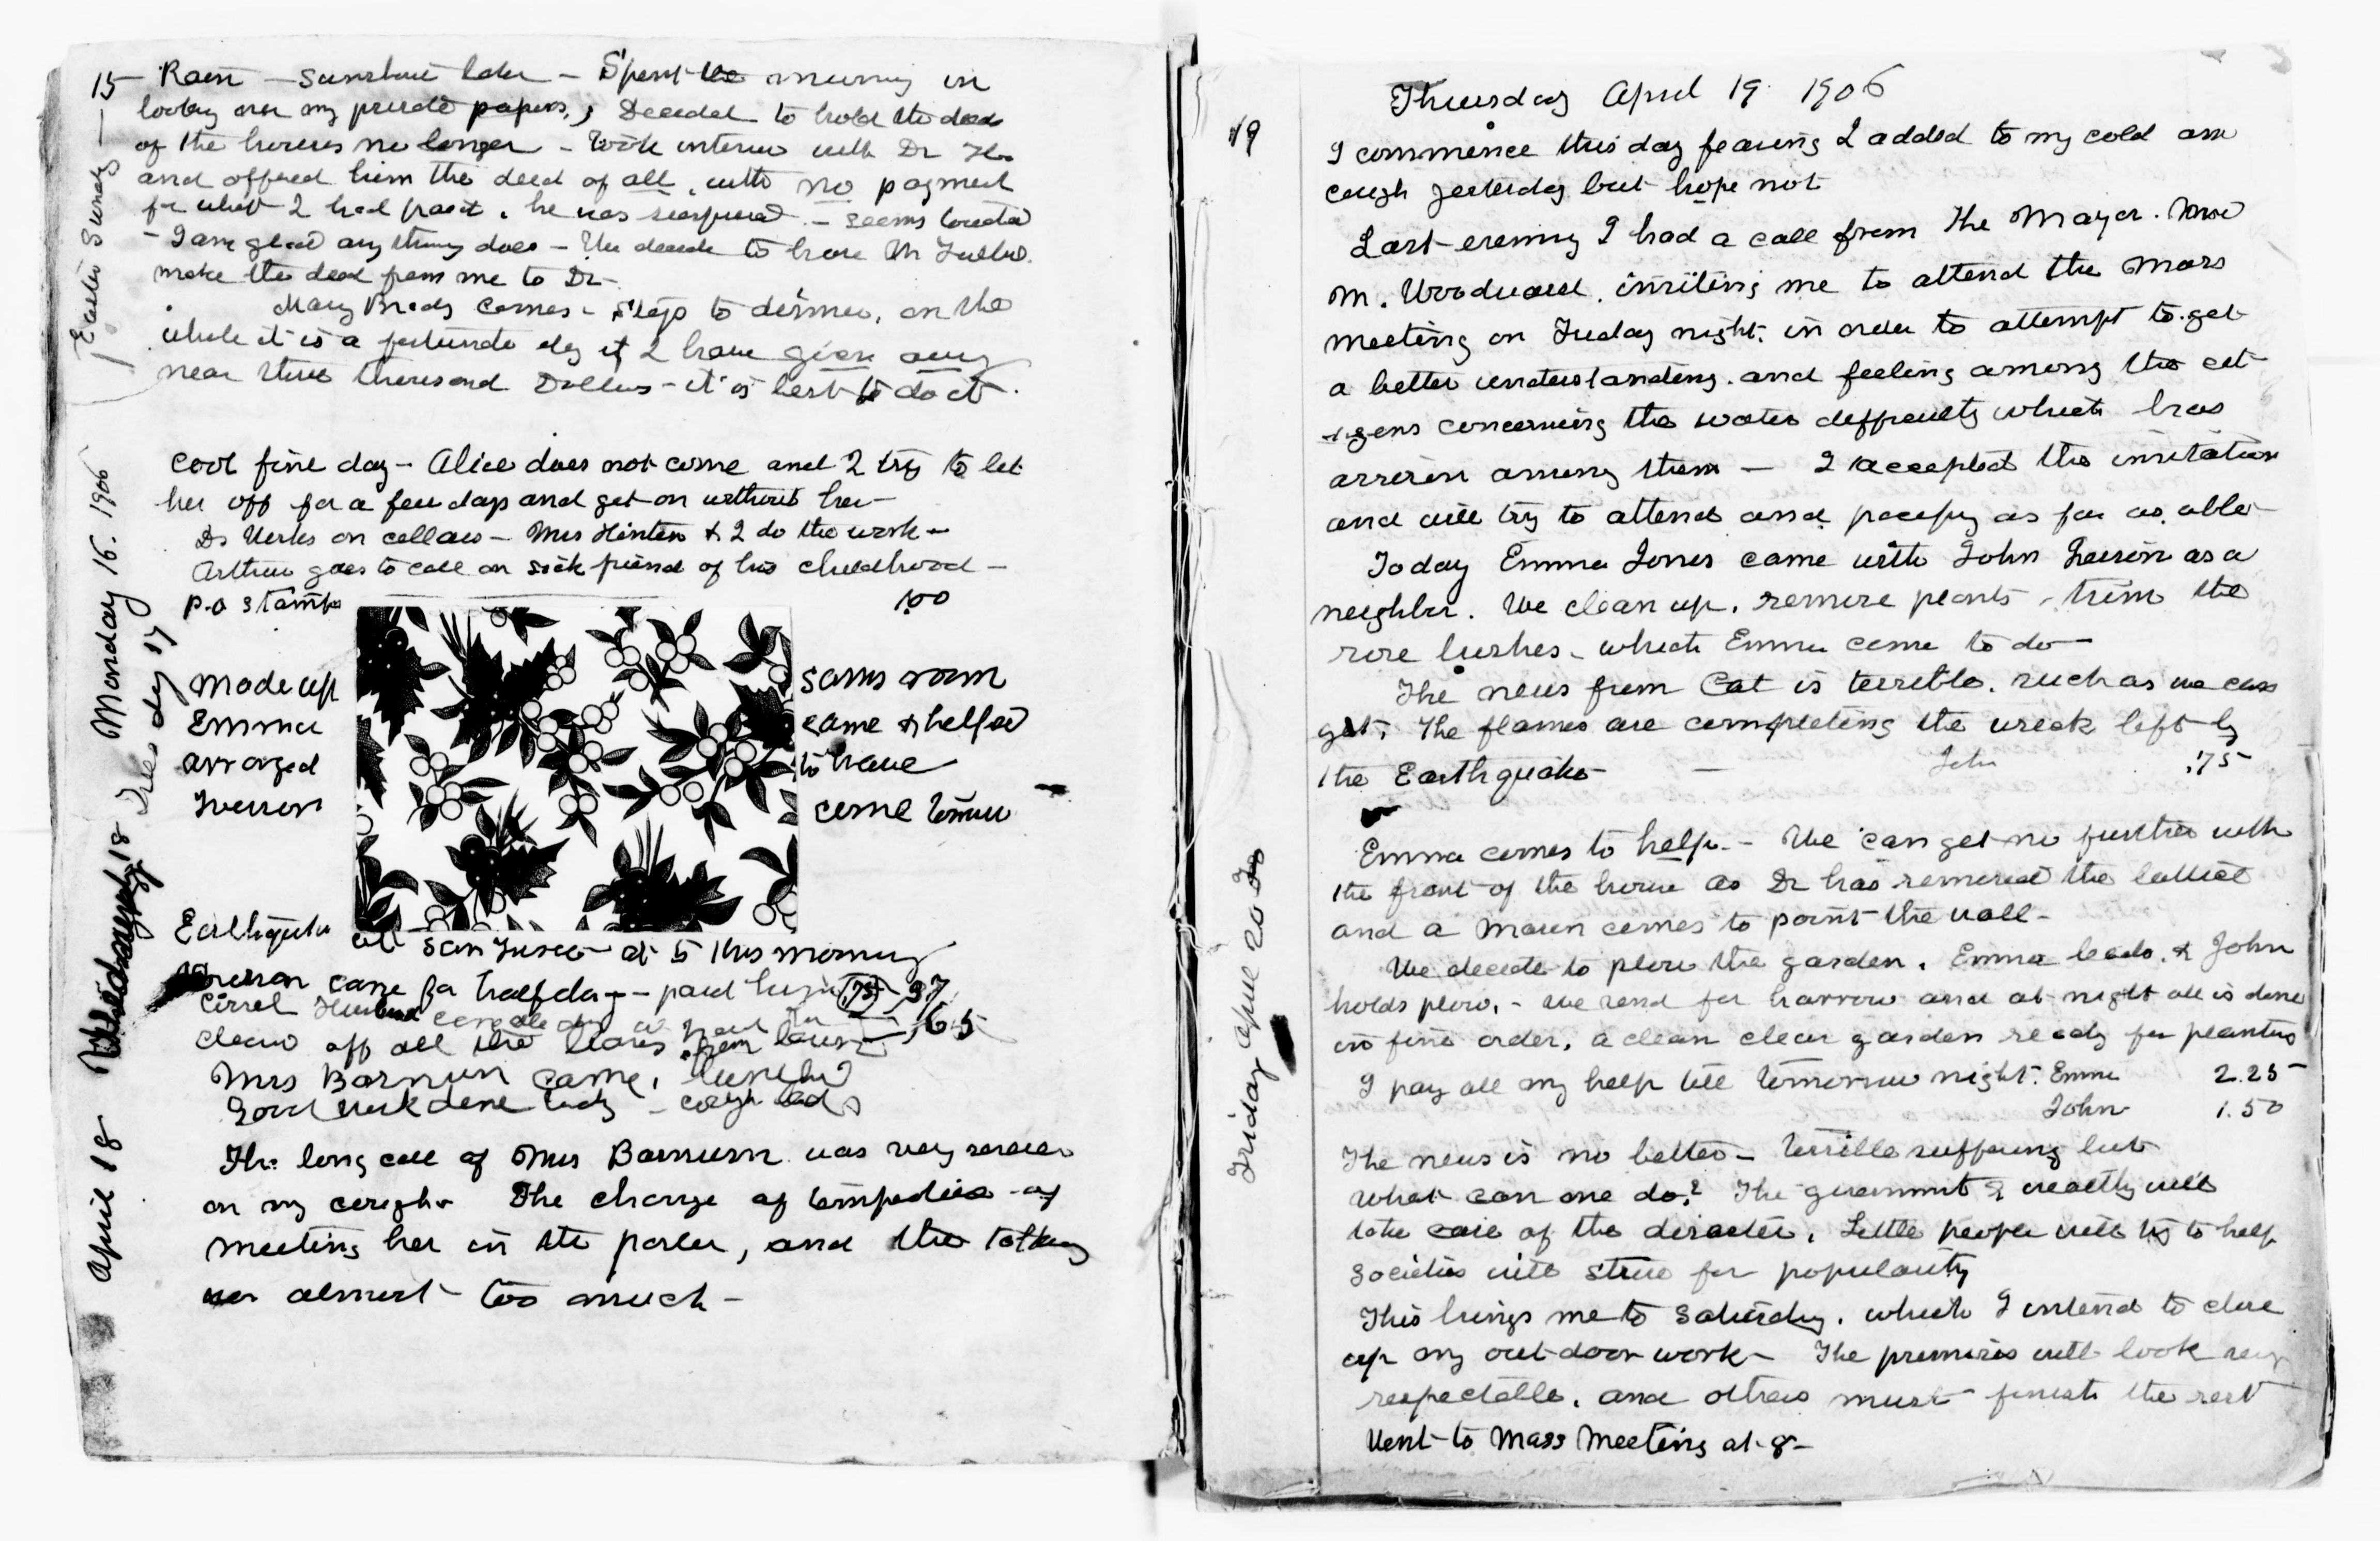 Easter Sunday
15 Rain - Sunshine later - Spent the morning in
looking over my private papers, Decided to hold the deed
of the houses no longer - Took interview with Dr H
and offered him the deed of all, with no payment
for what I had paid. he was surprised - seems
- I am glad any thing does - We decide to have Mr
make the deed from me to Dr -
Mary Brady comes - Stays to dinner, on the
whole it is a fortunate day if I have given away
near three thousand Dollars - it is best to do it.
Monday 16. 1906
Cool fine day - Alice does not come and I try to let
her off for a few days and get on without her -
Dr Works on cellar - Mrs Hinton & I do the work -
Arthur goes to call on sick friend of his childhood -
P.O Stamps 1.00
Tues day 17
Made up Sams room
Emma came & helped
arranged to have
Iverson come tomorrow
Wednesday 18
Earthquake at San Fransco at 5 this morning
Iverson came for half day - paid him (.75) - 37
came all day
cleans off all the leaves from lawn 65
Mrs Barnum came, lunched
Good work done today - cough bad
April 18
The long call of Mrs Barnum was very severe
on my cough. The change of temperature of
meeting her in the parlor, and the talking
was almost too much -
Thursday April 19. 1906
19
I commence this day fearing I added to my cold and
cough yesterday but hope not
Last evening I had a call from the Mayor. Mrs
M. Woodward. inviting me to attend the mass
meeting on Friday night. in order to attempt to get
a better understanding. and feeling among the cit
izens concerning the water difficulty which has
arrisen among them - I accepted the invitation
and will try to attend and pacify as far as able -
Today Emma Jones came with John Iverson as a
neighbor. We clean up, remove plants, trim the
rose bushes - which Emma come to do -
The news from Cal is terrible. such as we can
get. The flames are completing the wreck left by
the Earthquake - John .75
Friday April 20
Emma comes to help. - We can get no further with
the front of the house as Dr has removed the lattice
and a mason comes to point the wall -
We decide to plow the garden. Emma leads. & John
holds plow. - We send for harrow and at night all is done
in fine order. a clean clear garden ready for planting
I pay all my help till tomorrow night. Emma 2.25
John 1.50
The news is no better - terrible suffering but
what can one do? The government & wealthy will
take care of the disaster. Little people will try to help
Societies will strive for popularity
This brings me to Saturday. which I intend to close
up my out-door work - The premises will look very
respectable. and others must finish the rest
Went to Mass Meeting at 8 -